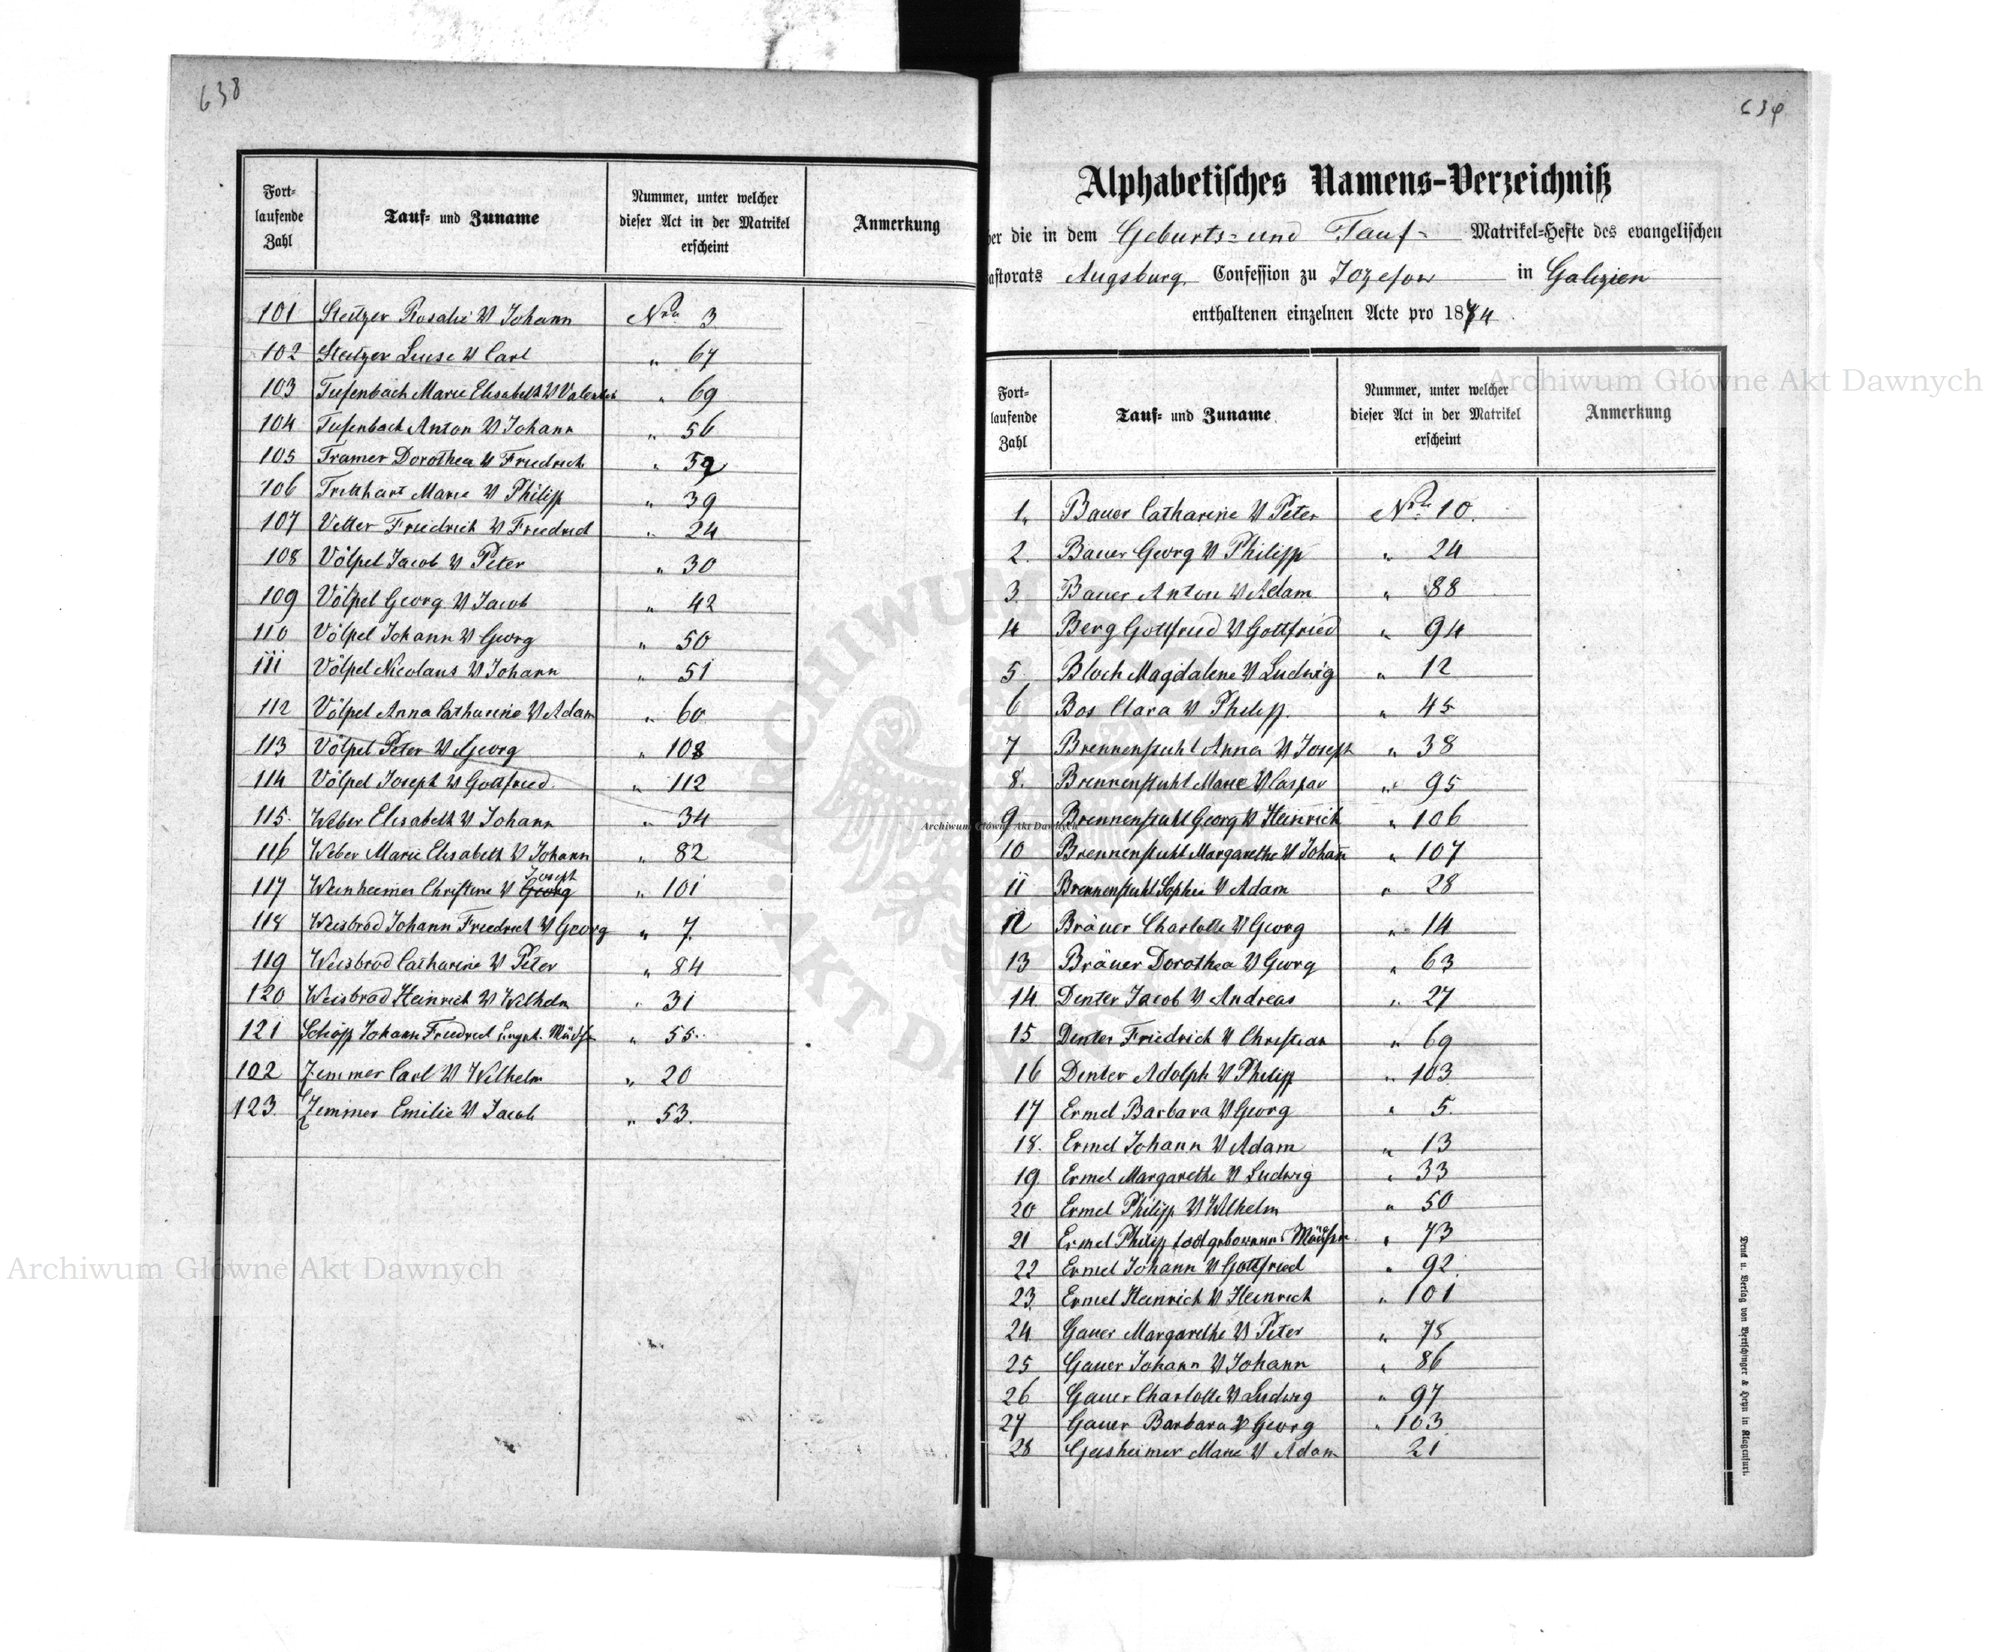 638
Fort-
laufende
Zahl
Tauf- und Zuname
Nummer, unter welcher
dieser Act in der Matrikel
erscheint
Anmerkung
101 Steitzer Rosalie V Johann Nro 3
102 Steitzer Luise V Carl " 67
103 Tiefenbach Marie Elisabeth V Valentin " 69
104 Tiefenbach Anton V Johann " 56
105 Tramer Dorothea V Friedrich " 59
106 Marie V Philipp " 39
107 Vetter Friedrich V Friedrich " 24
108 Völpel Jacob V Peter " 30
109 Völpel Georg V Jacob " 42
110 Völpel Johann V Georg " 50
111 Völpel Nicolaus V Johann " 51
112 Völpel Anna Catharine V Adam " 60
113 Völpel Peter V Georg " 108
114 Völpel Joseph V Gottfried " 112
115. Weber Elisabeth V Johann " 34
116 Weber Marie Elisabeth V Johann " 82
Joseph
117 Weinheimer Christine V Georg " 101
118 Weisbrod Johann Friedrich V Georg " 7.
119 Weisbrod Catharine V Peter " 84
120 Weisbrod Heinrich V Wilhelm " 31
121 Schöpp Johann Friedrich " 55.
122 Zemmer Carl V Wilhelm " 20
123. Zemmer Emilie V Jacob " 53.
639
Alphabetisches Namens-Verzeichniß
der die in dem Geburts- und Tauf- Matrikel-Hefte des evangelischen
Pastorats Augsburg. Confession zu Jozefow in Galizien
enthaltenen einzelnen Acte pro 1874.
Fort-
laufende
Zahl
Tauf- und Zuname
Nummer, unter welcher
dieser Act in der Matrikel
erscheint
Anmerkung
1. Bauer Catharine V Peter Nro 10.
2. Bauer Georg V Philipp " 24
3. Bauer Anton V Adam " 88
4 Berg Gottfried V Gottfried " 94
5 Bloch Magdalene V Ludwig " 12
6 Bos Clara V Philipp. " 45
7 Brennenstuhl Anna V Joseph " 38
8. Brennenstuhl Marie V Caspar " 95
9 Brennenstuhl Georg V Heinrich " 106
10 Brennenstuhl Margarethe V Johann " 107
11 Brennenstuhl Sophie V Adam " 28
12 Bräuer Charlotte V Georg " 14
13 Bräuer Dorothea V Georg " 63
14. Denter Jacob V Andreas " 27
15 Denter Friedrich V Christian " 69
16 Denter Adolph V Philipp " 103
17 Ermel Barbara V Georg " 5.
18. Ermel Johann V Adam " 13
19. Ermel Margarethe V Ludwig " 33
20 Ermel Philipp V Wilhelm " 50
21 Ermel Philipp todtgeborenes " 73
22 Ermel Johann V Gottfried " 92
23. Ermel Heinrich V Heinrich " 101
24 Gauer Margarethe V Peter " 75
25 Gauer Johann V Johann " 86
26 Gauer Charlotte V Ludwig " 97
27 Gauer Barbara V Georg " 103
28 Geisheimer Marie V Adam 21
Druck u. Verlag von Bertschinger & Heyn in Klagenfurt.
Archiwum Główne Akt Dawnych
Archiwum Główne Akt Dawnych
Archiwum Główne Akt Dawnych